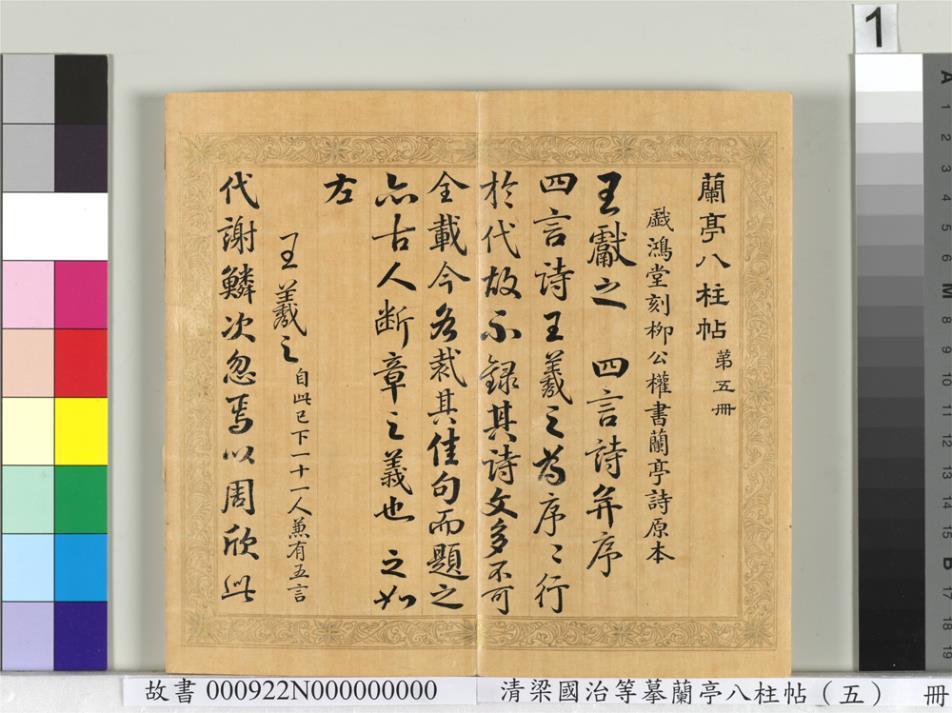 蘭亭八柱帖 第五冊
戲鴻堂刻柳公權書蘭亭詩原本
王獻之 四言詩并序
四言詩王羲之為序〻行
於代故不録其詩文多不可
全載今各裁其佳句而題之
亦古人断章之義也 之如
左
王羲之 自此已下一十一人兼有五言
代謝鱗次忽焉以周欣此
1
A 1 2 3 4 5 6 M 8 9 10 11 12 13 14 15 B 17 18 19
故書 000922N000000000
清梁國治等摹蘭亭八柱帖（五） 冊